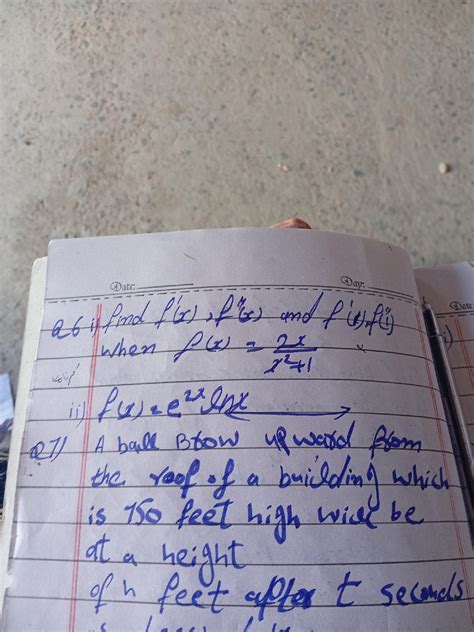 Date:
Day:
Q6 i) find f'(x), f"(x) and f'(1), f"(1)
when f(x) = 2x/x²+1
ii) f(x) = e^2x lnx
Q7) A ball Brow upward from
the roof of a building which
is 750 feet high will be
at a height
of h feet after t seconds